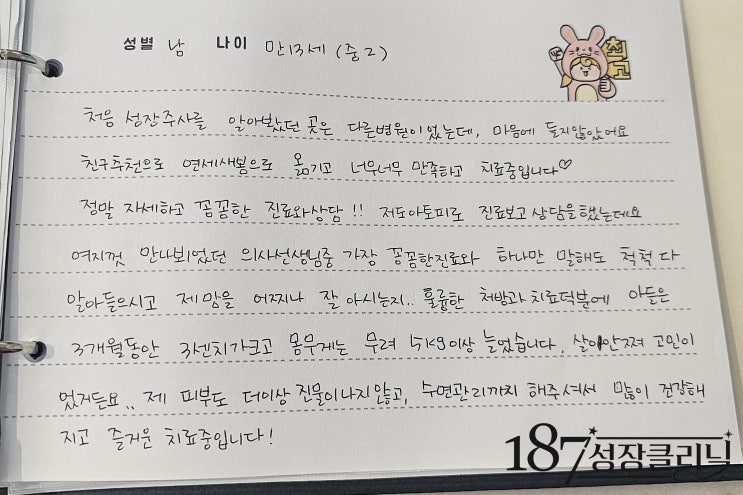 성별 남 나이 만13세 (중2)
최고
처음 성장주사를 알아봤던 곳은 다른병원이었는데, 마음에 들지않았어요
친구추천으로 연세새봄으로 옮기고 너무너무 만족하고 치료중입니다♡
정말 자세하고 꼼꼼한 진료와상담!! 저도아토피로 진료보고 상담을했는데요
여지껏 만나뵈었던 의사선생님중 가장 꼼꼼한진료와 하나만 말해도 척척 다
알아들으시고 제맘을 어찌나 잘 아시는지.. 훌륭한 처방과 치료덕분에 아들은
3개월동안 3센치가크고 몸무게는 무려 5kg이상 늘었습니다. 살이안쪄 고민이
었거든요.. 제 피부도 더이상 진물이나지않고, 수면관리까지 해주셔서 많이 건강해
지고 즐거운 치료중입니다!
187성장클리닉